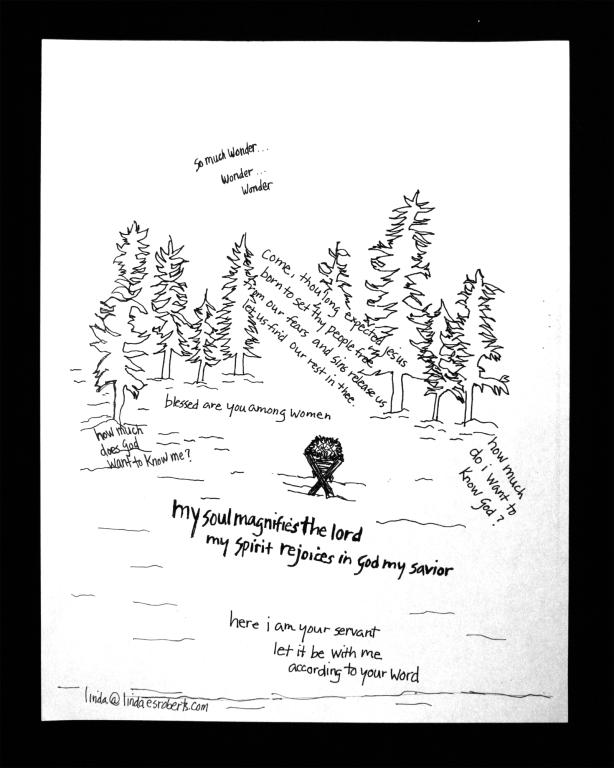 so much wonder...
wonder...
wonder
Come, thou long expected jesus
born to set thy people free
from our fears and sins release us
let us find our rest in thee.
blessed are you among women
how much
does god
want to know me?
how much
do i want to
know god?
my soul magnifies the lord
my spirit rejoices in god my savior
here i am your servant
let it be with me
according to your word
linda@lindaesroberts.com